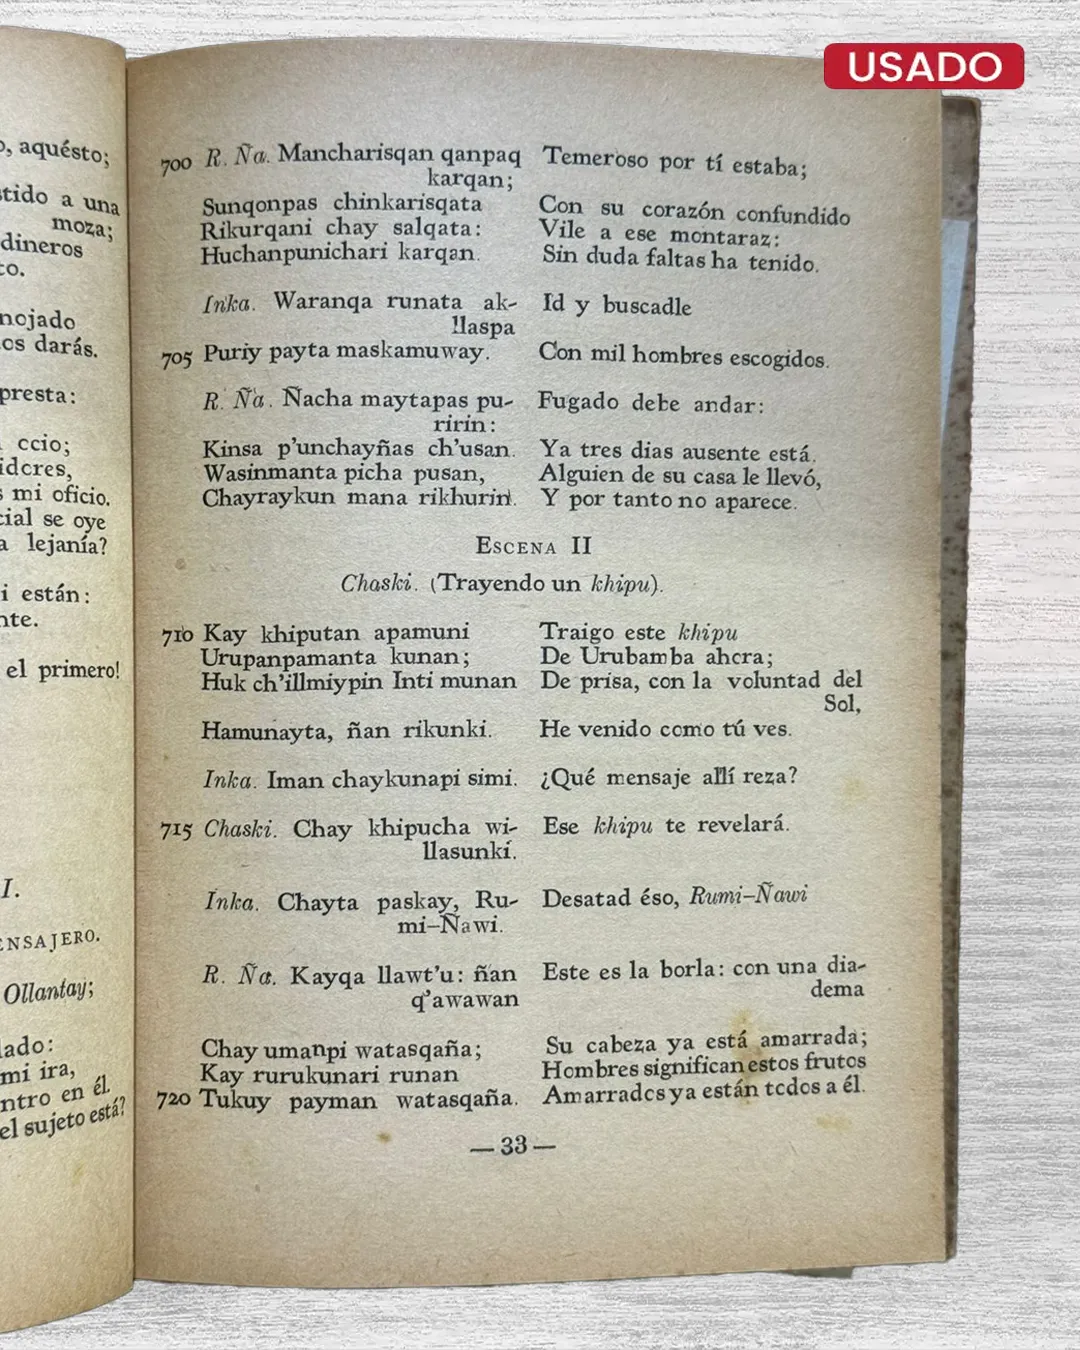 USADO
o, aquésto;
stido a una
moza;
dineros
to.
nojado
os darás.
presta:
ccio;
idores,
s mi oficio.
cial se oye
a lejanía?
i están:
nte.
el primero!
I.
ENSAJERO.
Ollantay;
lado:
mi ira,
ntro en él.
el sujeto está?
700 R. Ña. Mancharisqan qanpaq
karqan;
Sunqonpas chinkarisqata
Rikurqani chay salqata:
Huchanpunichari karqan.
Inka. Waranqa runata ak-
llaspa
705 Puriy payta maskamuway.
R. Ña. Ñacha maytapas pu-
ririn:
Kinsa p'unchayñas ch'usan.
Wasinmanta picha pusan,
Chayraykun mana rikhurin.
Temeroso por tí estaba;
Con su corazón confundido
Vile a ese montaraz:
Sin duda faltas ha tenido.
Id y buscadle
Con mil hombres escogidos.
Fugado debe andar:
Ya tres dias ausente está.
Alguien de su casa le llevó,
Y por tanto no aparece.
ESCENA II
Chaski. (Trayendo un khipu).
710 Kay khiputan apamuni
Urupanpamanta kunan;
Huk ch'illmiypin Inti munan
Hamunayta, ñan rikunki.
Inka. Iman chaykunapi simi.
715 Chaski. Chay khipucha wi-
llasunki.
Inka. Chayta paskay, Ru-
mi-Ñawi.
R. Ña. Kayqa llawt'u: ñan
q'awawan
Chay umanpi watasqaña;
Kay rurukunari runan
720 Tukuy payman watasqaña.
Traigo este khipu
De Urubamba ahora;
De prisa, con la voluntad del
Sol,
He venido como tú ves.
¿Qué mensaje allí reza?
Ese khipu te revelará.
Desatad éso, Rumi-Ñawi
Este es la borla: con una dia-
dema
Su cabeza ya está amarrada;
Hombres significan estos frutos
Amarrados ya están todos a él.
— 33 —